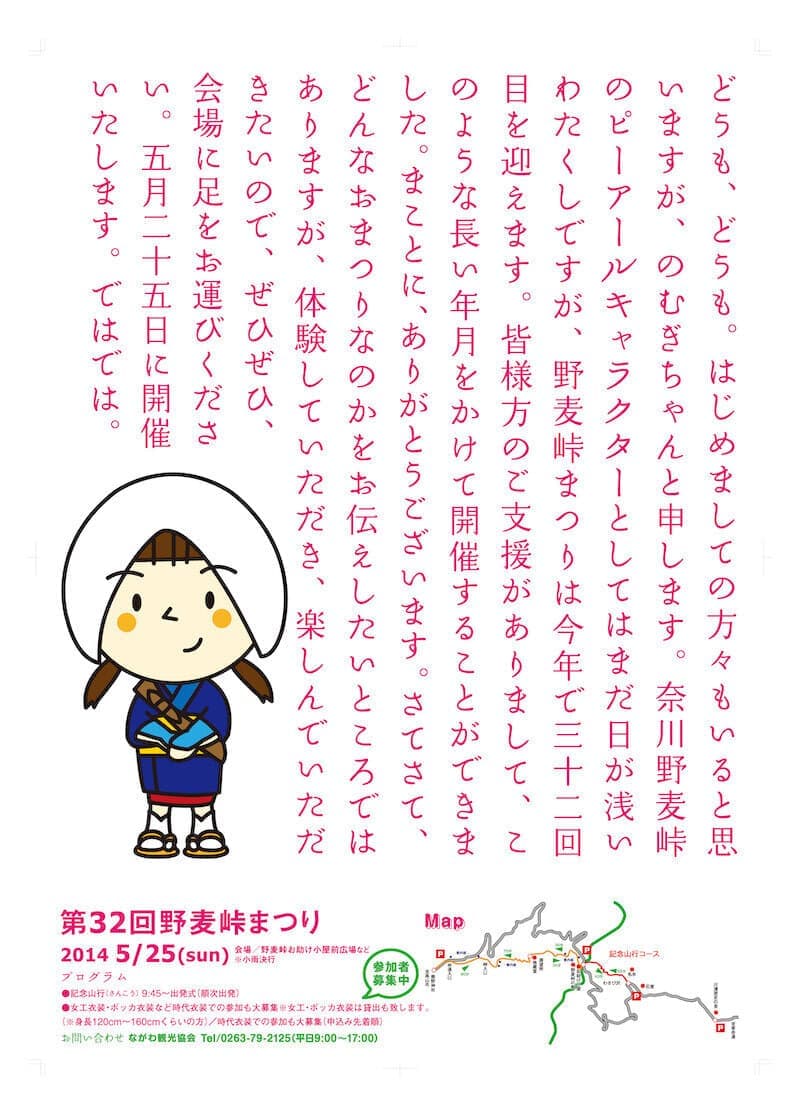 どうも、どうも。はじめましての方々もいると思
いますが、のむぎちゃんと申します。奈川野麦峠
のピーアールキャラクターとしてはまだ日が浅い
わたくしですが、野麦峠まつりは今年で三十二回
目を迎えます。皆様方のご支援がありまして、こ
のような長い年月をかけて開催することができま
した。まことに、ありがとうございます。さてさて、
どんなおまつりなのかをお伝えしたいところでは
ありますが、体験していただき、楽しんでいただ
きたいので、ぜひぜひ、
会場に足をお運びくださ
い。五月二十五日に開催
いたします。ではでは。
第32回野麦峠まつり
2014 5/25(sun) 会場／野麦峠お助け小屋前広場など
※小雨決行
プログラム
●記念山行(さんこう) 9:45〜出発式(順次出発)
●女工衣装・ボッカ衣装など時代衣装での参加も大募集※女工・ボッカ衣装は貸出も致します。
(※身長120cm〜160cmくらいの方)／時代衣装での参加も大募集(申込み先着順)
お問い合わせ ながわ観光協会 Tel/0263-79-2125(平日9:00〜17:00)
参加者
募集中
Map
記念山行コース
P
P
P
P